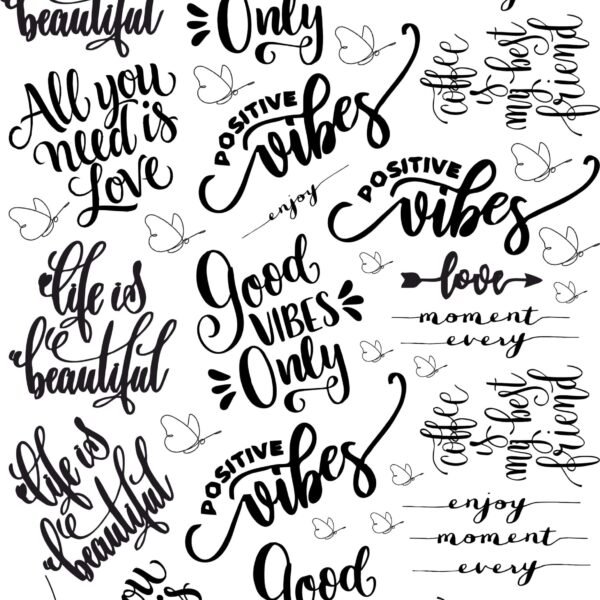 beautiful
Only
coffee
is
my best
friend
All you
need is
Love
POSITIVE
vibes
enjoy
POSITIVE
vibes
life is
beautiful
Good
VIBES
Only
love
moment
every
coffee
is
my best
friend
life is
beautiful
POSITIVE
vibes
enjoy
moment
every
you
is
Good